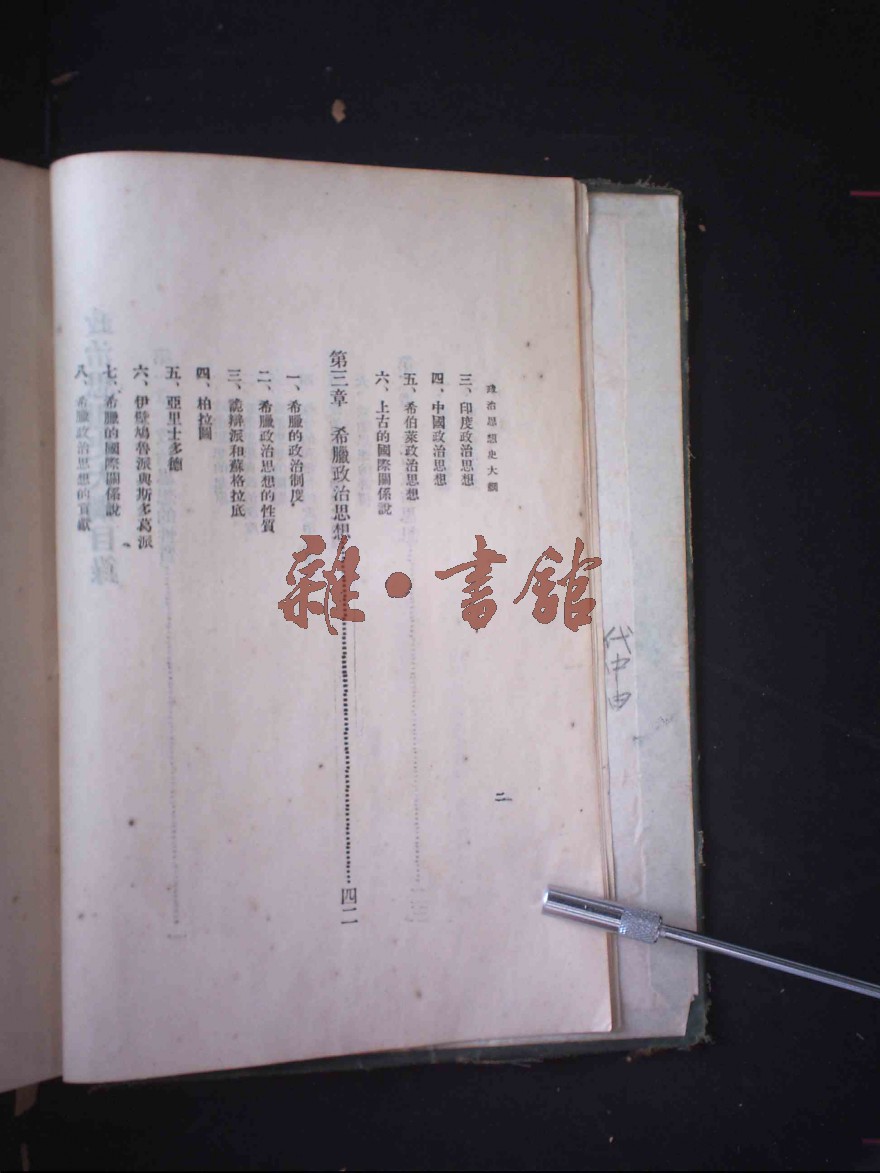 政治思想史大綱
二
三、印度政治思想
四、中國政治思想
五、希伯萊政治思想
六、上古的國際關係說
第三章　希臘政治思想……四二
一、希臘的政治制度
二、希臘政治思想的性質
三、詭辯派和蘇格拉底
四、柏拉圖
五、亞里士多德
六、伊壁鳩魯派與斯多葛派
七、希臘的國際關係說
八、希臘政治思想的貢獻
雜·書館